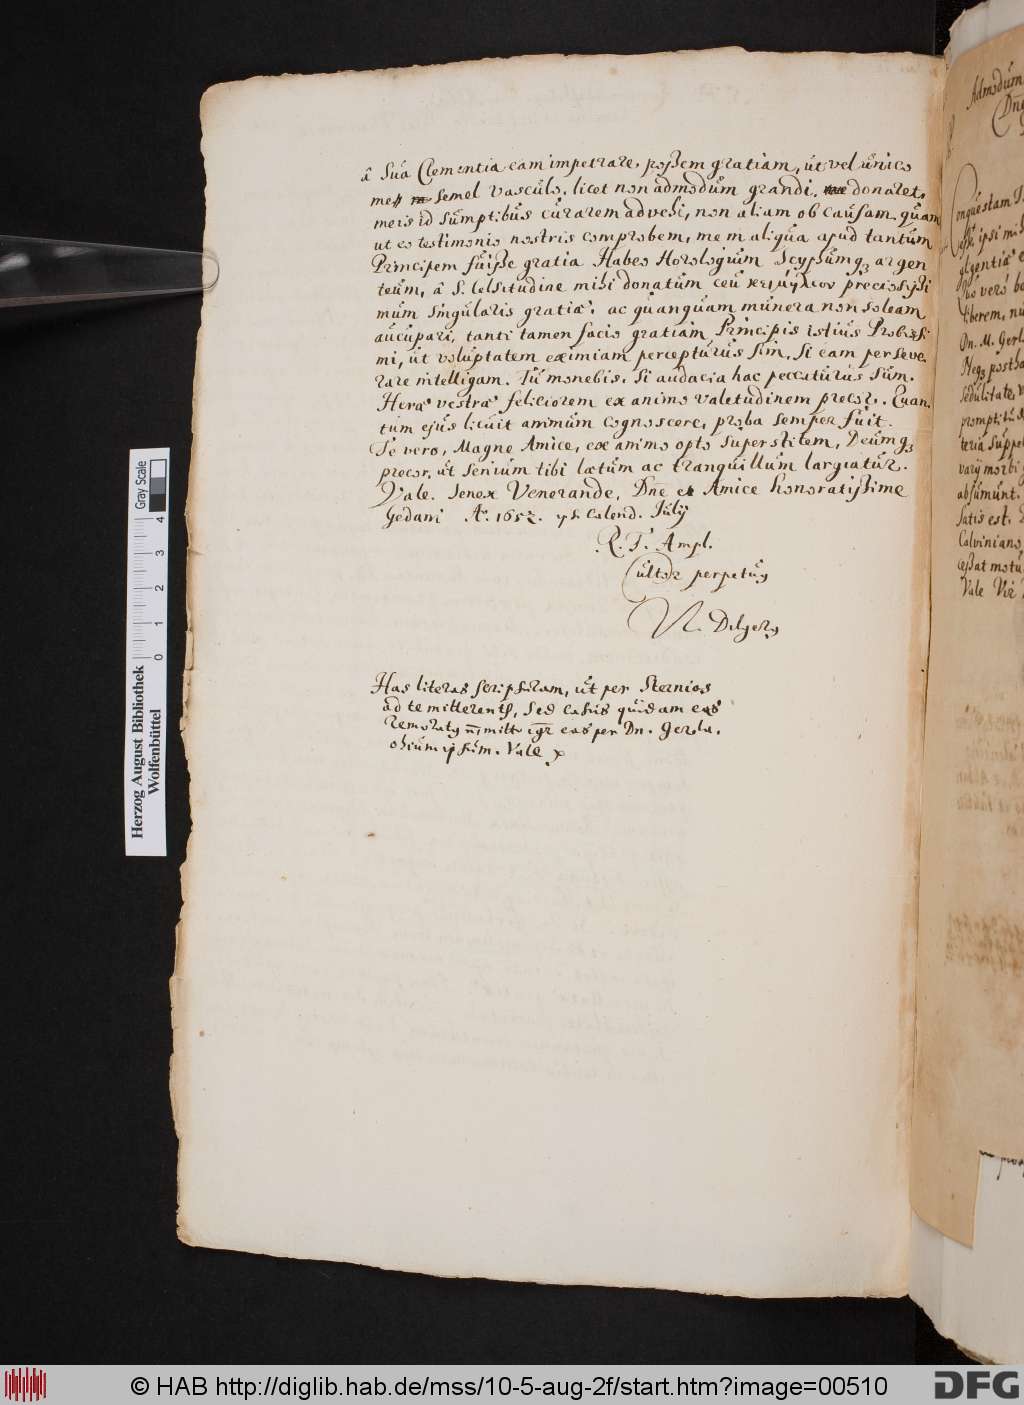 â Suâ Clementia eam impetrare possem gratiam, ut vel unico
me semel vasculo, licet non admodum grandi, donaret,
meis id sumptibus curarem advehi, non aliam ob causam, quam
ut eo testimonio nostris comprobem, me in aliqua apud tantum
Principem fuisse gratia. Habeo Horologium Scyphumq; argen
teum, â S. Celsitudine mihi donatum ceu κειμήλιον preciosissi
mum singularis gratiæ. ac quanquam munera non soleam
aucupari, tanti tamen facio gratiam Principis istius Probissi
mi, ut voluptatem eximiam percepturus sim, si eam perseve
rare intelligam. Tu monebis, si audacia hac peccaturus sum.
Heræ vestræ feliciorem ex animo valetudinem precor. Quan
tum ejus licuit animum cognoscere, proba semper fuit.
Te vero, Magne Amice, ex animo opto superstitem, Deumq;
precor, ut senium tibi lætum ac tranquillum largiatur.
Vale. Senex Venerande, Dne et Amice honoratissime
Gedani Aº. 1652. Calend. Julij
R. T. Ampl.
Cultor perpetuus
N. Dilgerus
Has literas scripseram, ut per Sternios
ad te mitterentur, sed casus quidam eas
remoratus mitto igr eas per Dn. Gerla.
chium ipsum. Vale
Admodum
Dne
Conquestam
ipsi mih
gligentiæ
vero
liberem, nu
Dn. M. Gerl
Neq; postha
sedulitate,
promptitud
teria suppet
varij morbi
absumunt.
satis est.
Calviniano
cessat motu
Vale Vir
Herzog August Bibliothek
Wolfenbüttel
0 1 2 3 4
Gray Scale
© HAB http://diglib.hab.de/mss/10-5-aug-2f/start.htm?image=00510
DFG